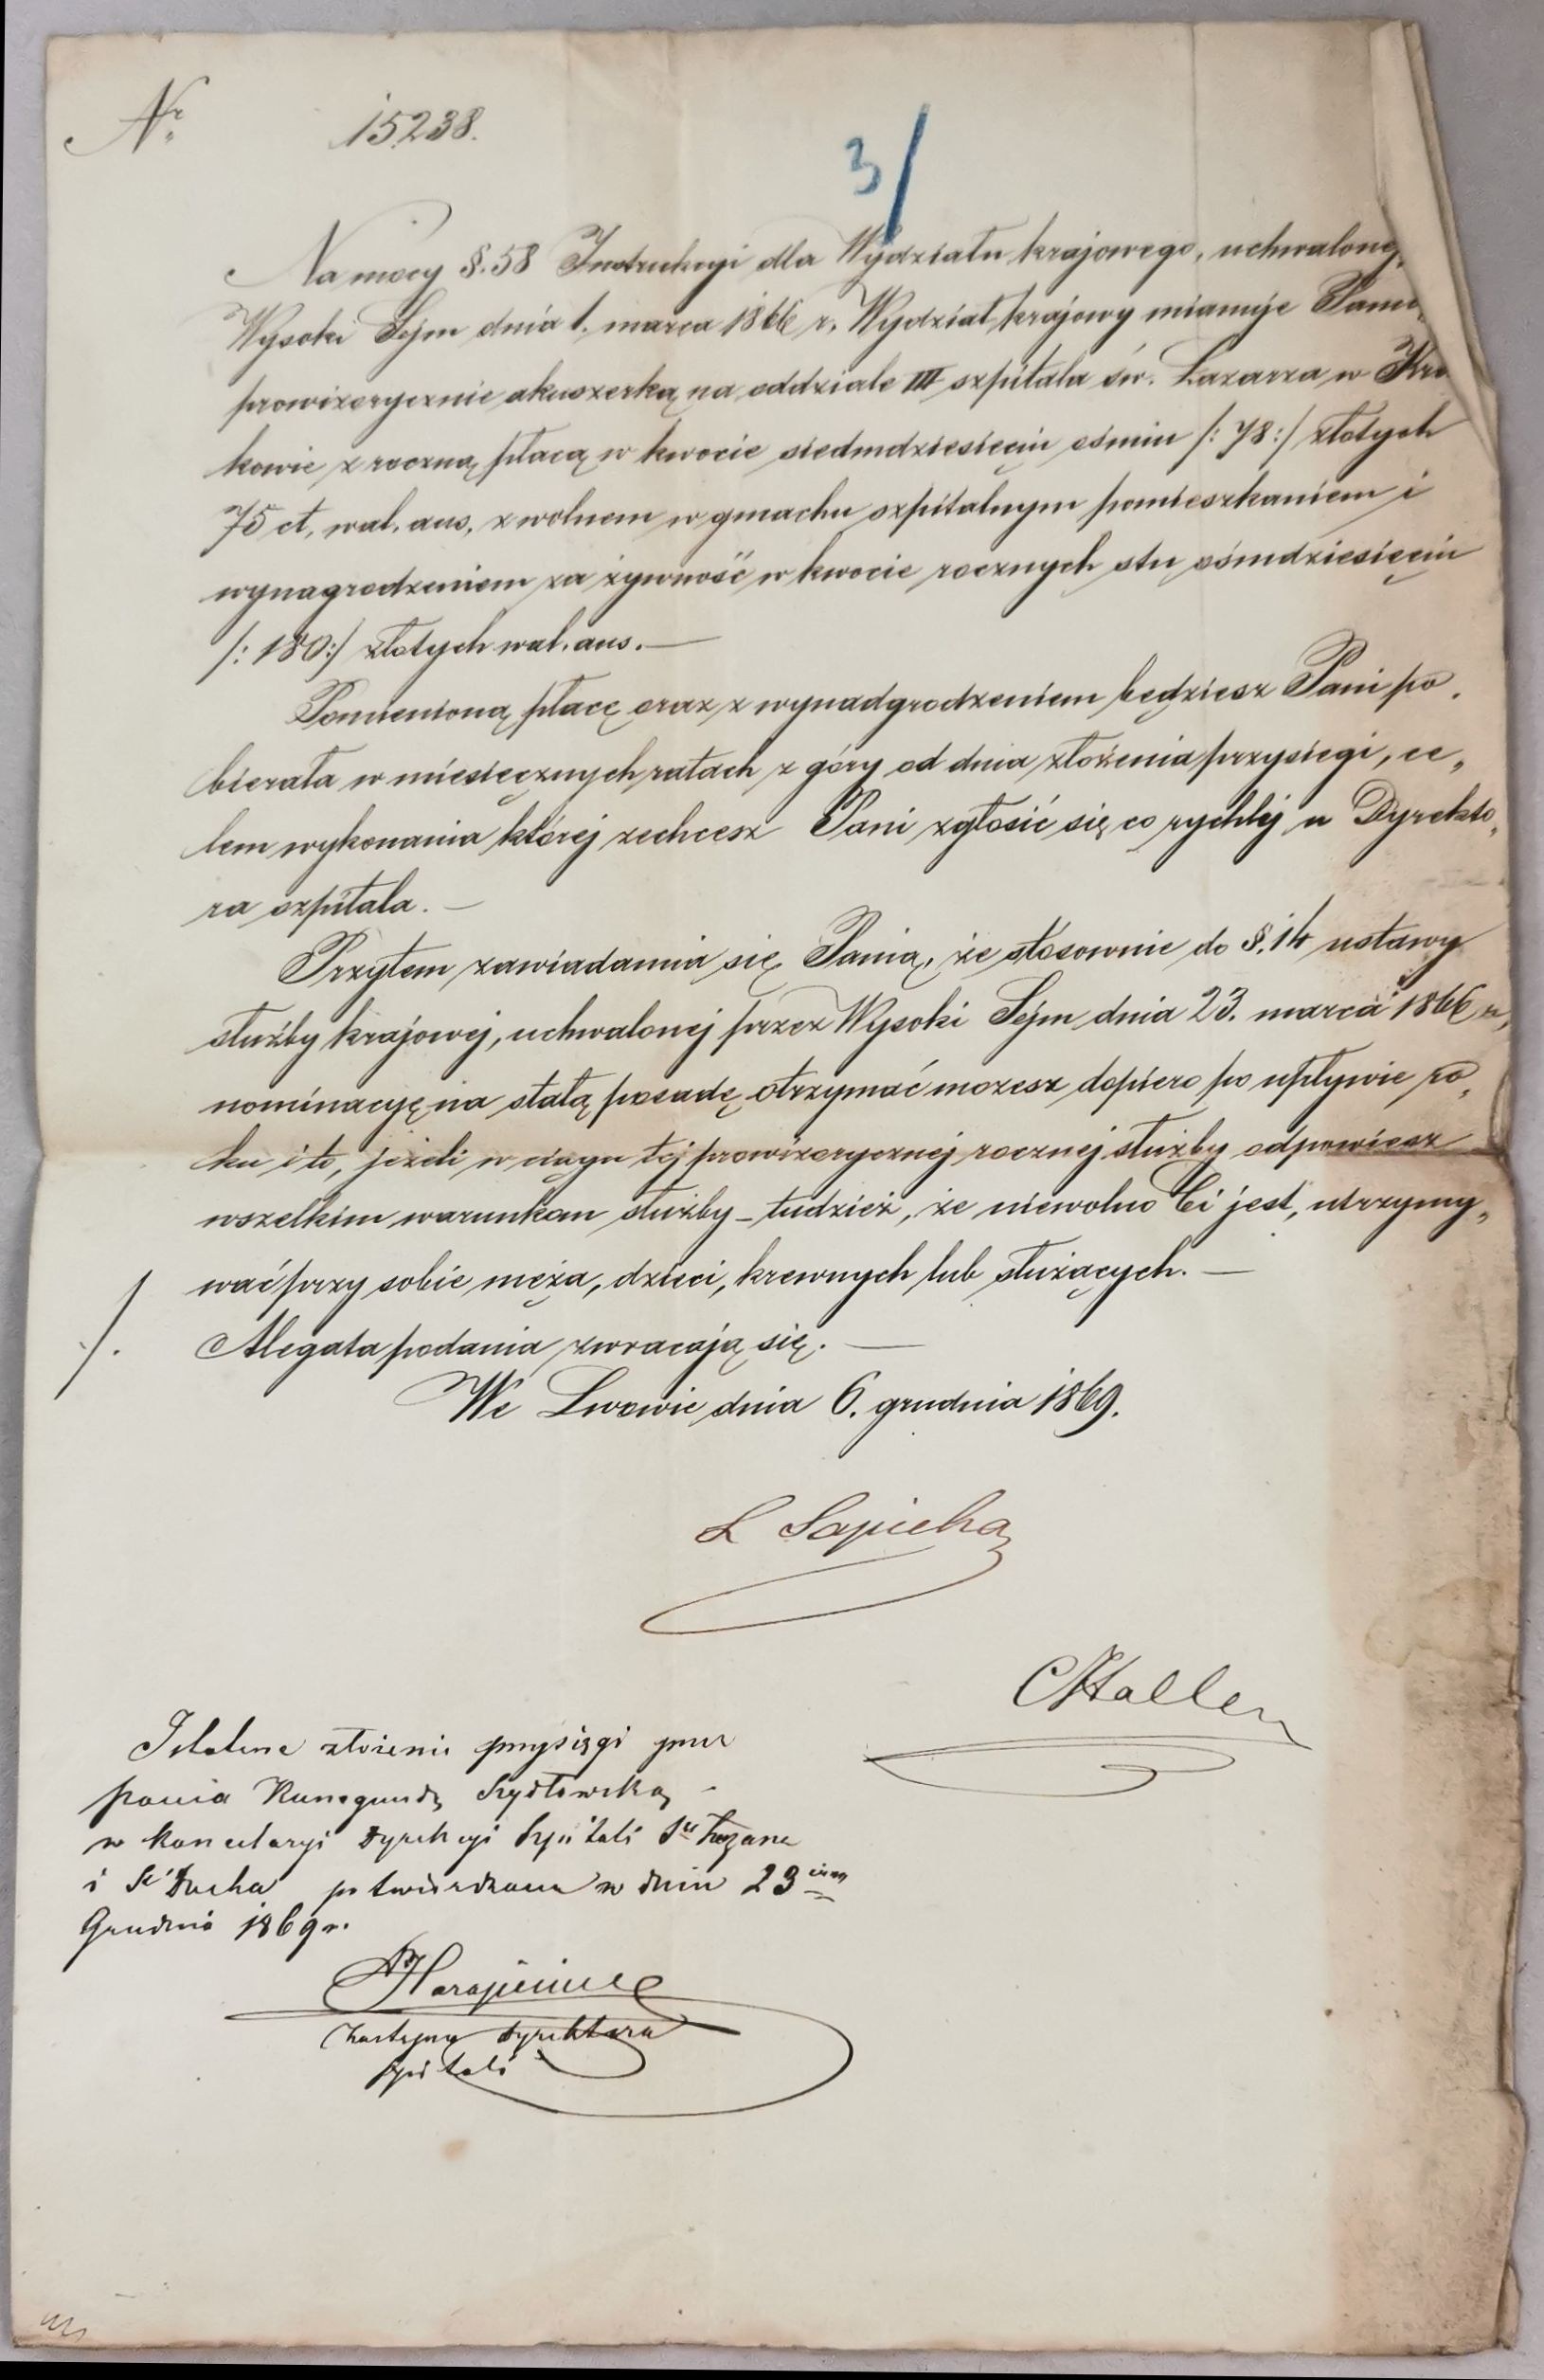 Nr 15238.
3/
Na mocy §. 58 Instrukcyi dla Wydziału krajowego, uchwalonej
Wysoki Sejm dnia 1. marca 1866 r. Wydział krajowy mianuje Panią
prowizorycznie akuszerką na oddziale III szpitala św. Łazarza w Kra
kowie z roczną płacą w kwocie siedmdziesięciu ośmiu /: 78 :/ złotych
75 ct. wal. aus. z wolnem w gmachu szpitalnym pomieszkaniem i
wynagrodzeniem za żywność w kwocie rocznych stu ośmdziesięciu
/: 180 :/ złotych wal. aus. —
Pomienioną płacę oraz z wynadgrodzeniem będziesz Pani po„
bierała w miesięcznych ratach z góry od dnia złożenia przysięgi, ce„
lem wykonania której zechcesz Pani zgłosić się co rychlej u Dyrekto„
ra szpitala. —
Przytem zawiadamia się Panią, że stosownie do §. 14 ustawy
służby krajowej, uchwalonej przez Wysoki Sejm dnia 23. marca 1866 r,
nominacyę na stałą posadę otrzymać możesz dopiero po upływie ro„
ku i to, jeżeli w ciągu tej prowizorycznej rocznej służby odpowiesz
wszelkim warunkom służby – tudzież, że niewolno Ci jest, utrzymy„
wać przy sobie męża, dzieci, krewnych lub służących. —
./. Alegata podania zwracają się. —
We Lwowie dnia 6. grudnia 1869.
L Sapieha
CHaller
złożenie przysięgi przez
Kunegundę Szydłowską
w kancelaryi Dyrekcyi Szpitali Sgo Łazarza
i St Ducha potwierdzam w dniu 23
Grudnia 1869 r.
Zastępca Dyrektora
Szpitali